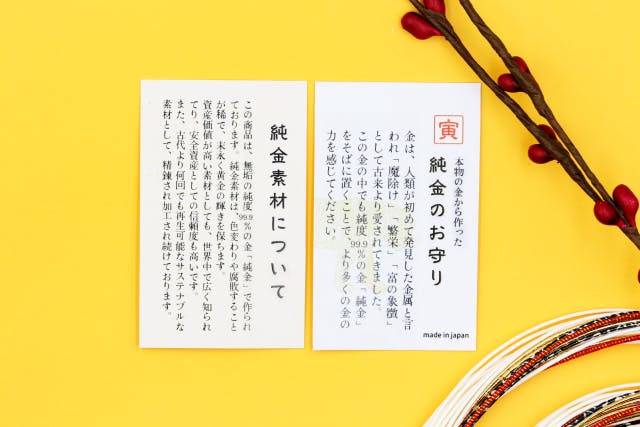 寅
本物の金から作った
純金のお守り
金は、人類が初めて発見した金属と言
われ「魔除け」「繁栄」「富の象徴」
として古来より愛されてきました。
この金の中でも純度99.9%の金「純金」
をそばに置くことで、より多くの金の
力を感じてください。
made in japan
純金素材について
この商品は、無垢の純度99.9%の金「純金」で作られ
ております。純金素材は、色変わりや腐敗すること
が稀で、末永く黄金の輝きを保ちます。
資産価値が高い素材としても、世界中で広く知られ
ており、安全資産としての信頼度も高いです。
また、古代より何回でも再生可能なサステナブルな
素材として、精錬され加工され続けております。